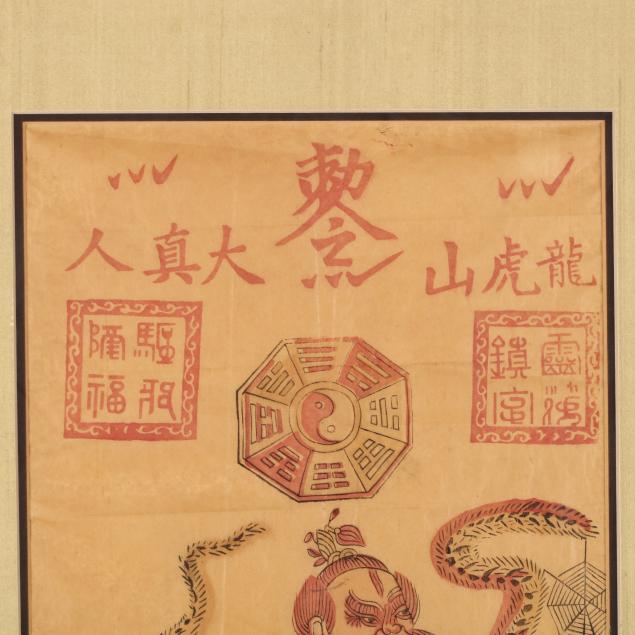 敕令
龍虎山
大真人
靈符
鎮宅
驅邪
降福